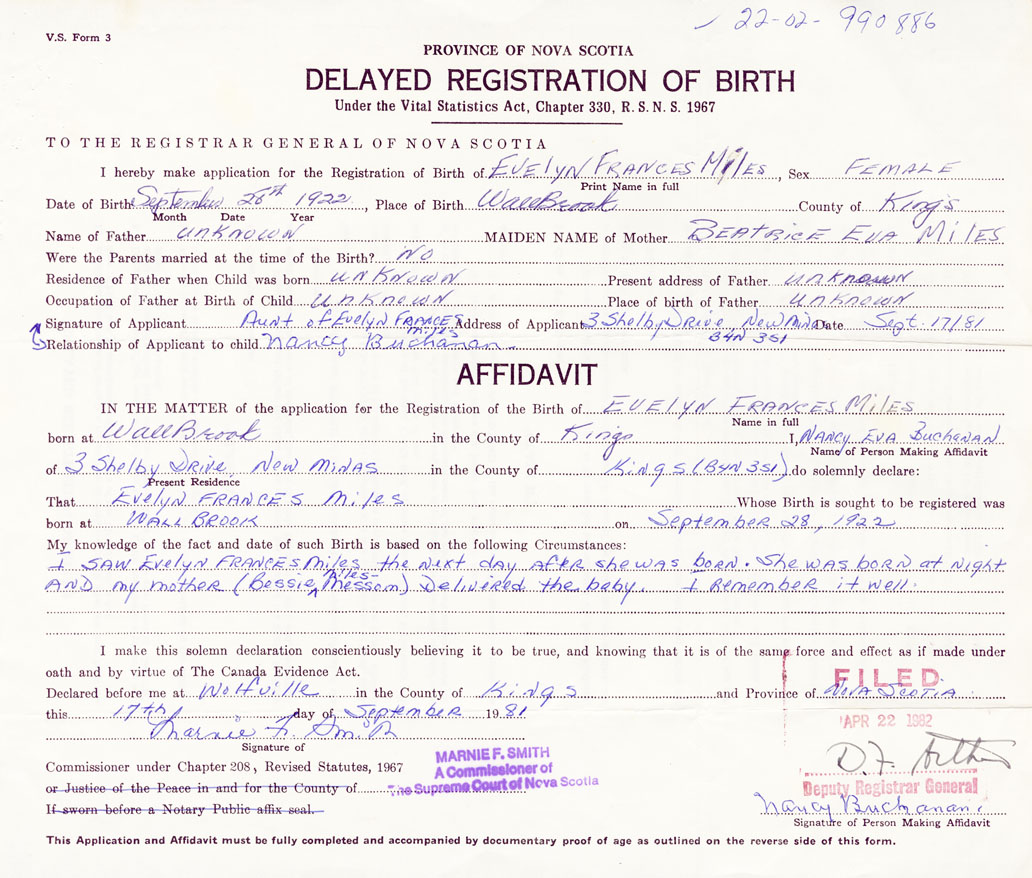 22-02-990886
V.S. Form 3
PROVINCE OF NOVA SCOTIA
DELAYED REGISTRATION OF BIRTH
Under the Vital Statistics Act, Chapter 330, R.S.N.S. 1967
TO THE REGISTRAR GENERAL OF NOVA SCOTIA
I hereby make application for the Registration of Birth of EVElyN FRANCES Miles, Sex FEMALE
Print Name in full
Date of Birth September 28th 1922, Place of Birth WallBrook County of Kings
Month Date Year
Name of Father UNKNOWN MAIDEN NAME of Mother BEATRICE EVA MILES
Were the Parents married at the time of the Birth? NO
Residence of Father when Child was born UNKNOWN Present address of Father UNKNOWN
Occupation of Father at Birth of Child UNKNOWN Place of birth of Father UNKNOWN
Signature of Applicant Aunt of Evelyn FRANCES Miles Address of Applicant 3 Shelby DRIVE, NEW MINAS Date Sept. 17/81
B4N 3S1
Relationship of Applicant to child Nancy Buchanan
AFFIDAVIT
IN THE MATTER of the application for the Registration of the Birth of EVElyN FRANCES Miles
Name in full
born at WallBrook in the County of Kings I, NANCY EVA BUCHANAN
Name of Person Making Affidavit
of 3 Shelby DRIVE, NEW MINAS in the County of Kings (B4N 3S1) do solemnly declare:
Present Residence
That Evelyn FRANCES Miles Whose Birth is sought to be registered was
born at WALL BROOK on September 28, 1922
My knowledge of the fact and date of such Birth is based on the following Circumstances:
I SAW Evelyn FRANCES Miles the next day after she was born. She was born at night
AND my mother (Bessie Miles- Messom) Delivered the baby. I Remember it well.
I make this solemn declaration conscientiously believing it to be true, and knowing that it is of the same force and effect as if made under
oath and by virtue of The Canada Evidence Act.
Declared before me at Wolfville in the County of Kings and Province of NOVA SCOTIA
FILED
this 17th day of September 1981
APR 22 1982
Marnie F. Smith
Signature of
MARNIE F. SMITH
A Commissioner of
The Supreme Court of Nova Scotia
Commissioner under Chapter 208, Revised Statutes, 1967
or Justice of the Peace in and for the County of
If sworn before a Notary Public affix seal.
D.F.
Deputy Registrar General
Nancy Buchanan
Signature of Person Making Affidavit
This Application and Affidavit must be fully completed and accompanied by documentary proof of age as outlined on the reverse side of this form.